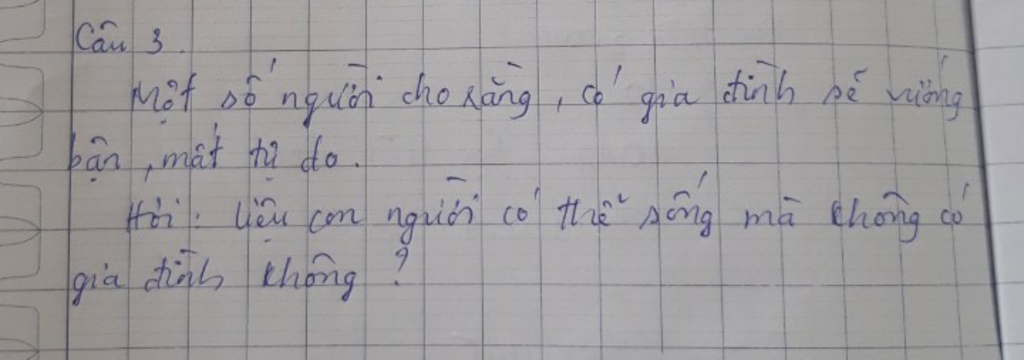 Câu 3.
Một số người cho rằng, có gia đình sẽ vướng
bận, mất tự do.
Hỏi: liệu con người có thể sống mà không có
gia đình không?